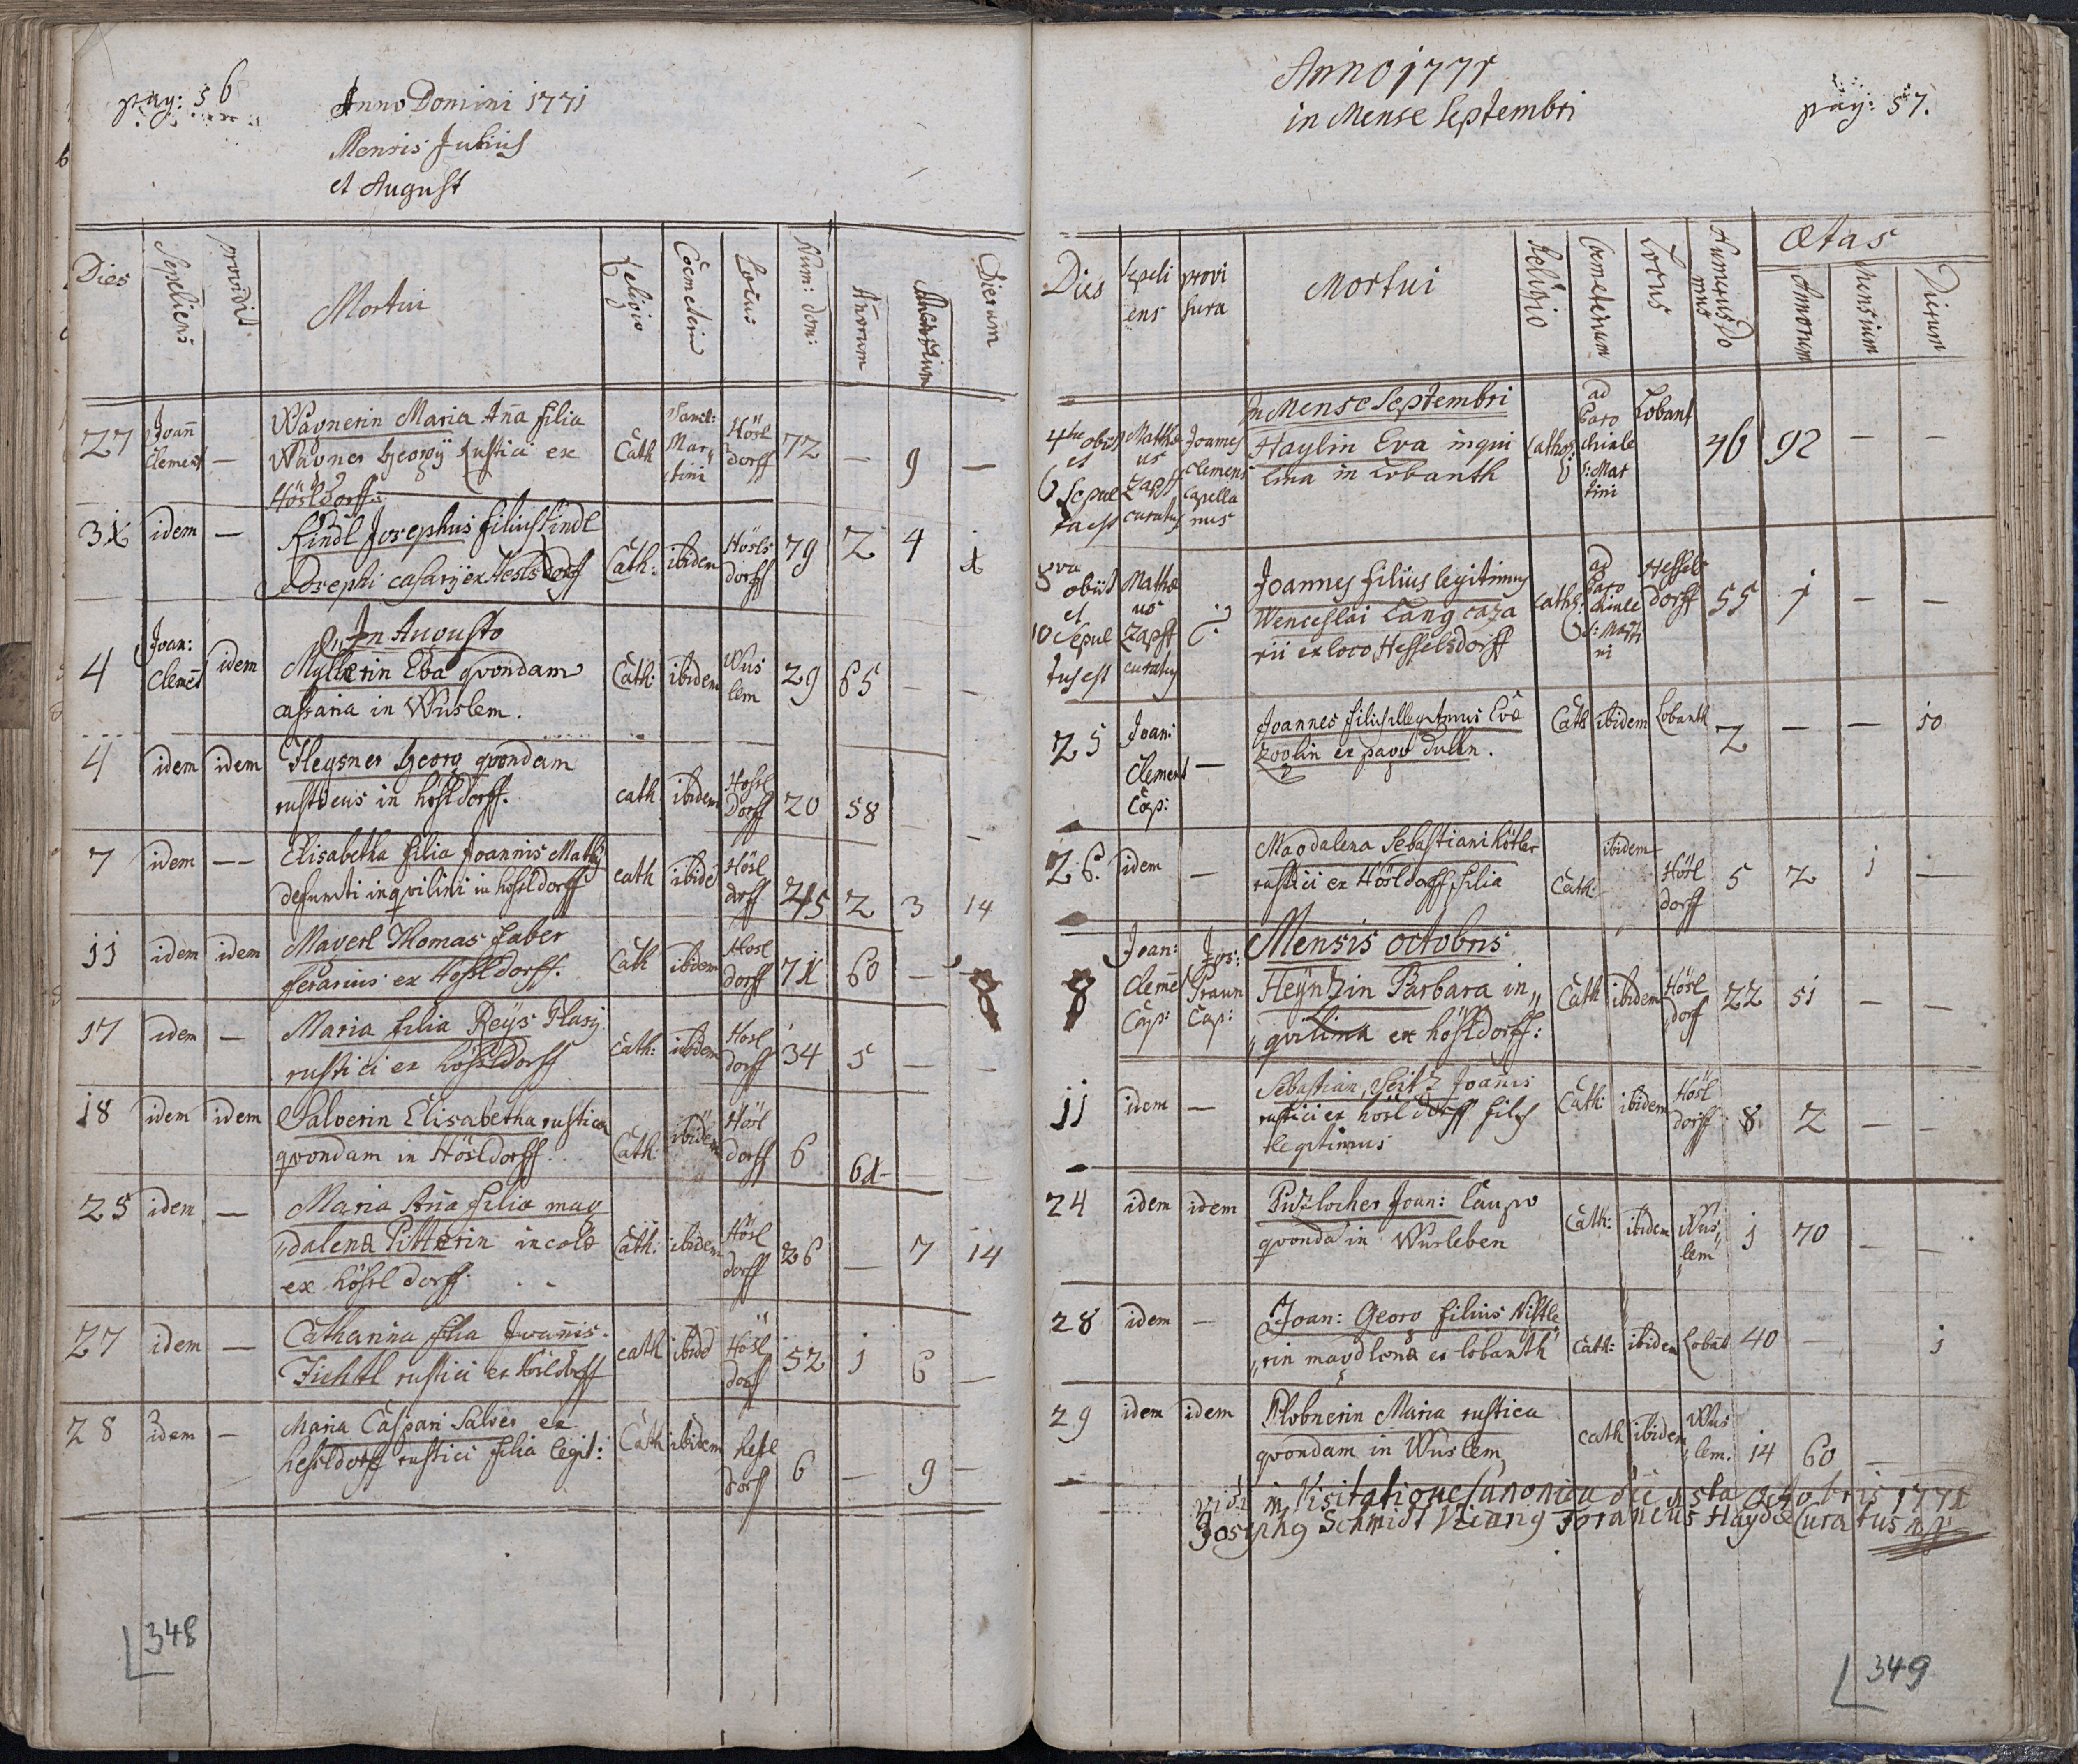 pag: 56
Anno Domini 1771
Mensis Julius
et August
Dies Sepeliens providit Mortui Religio Coemeteriū Locus Num: dom: Añorum Mensium Dierum
27 Joañ Clement — Wagnerin Maria Aña filia
Wagner Georgÿ rustici ex
Hösldorff. Cath Sanct: Martini Hösl dorff 72 — 9 —
31 idem — Kindl Josephus filius Kindl
Josephi casarÿ ex Heslsdorff Cath: ibidem Hösls dorff 79 2 4 1
In Augusto
4 Joan: Clemēt idem Myllerin Eva qvondam
casaria in Wuslem. Cath: ibidem Wus lem 29 65 — —
4 idem idem Heysner Georg qvondam
rusticus in hösldorff. cath ibidem Hössl Dorff 20 58 —
7 idem —— Elisabetha filia Joannis Mathÿ
defuncti inqvilini in hössldorff cath ibidē Hösl dorff 45 2 3 14
11 idem idem Mayerl Thomas faber
ferarius ex Hössldorff. Cath ibidem Hosl dorff 71 60 — —
17 idem — Maria filia Reÿs Blasÿ
rustici ex hössldorff Cath: ibidem Hosl dorff 34 5 — —
18 idem idem Salverin Elisabetha rustica
qvondam in Hösldorff. Cath: ibidem Hösl dorff 6 61 —
25 idem — Maria Aña filia mag
„dalena Pitterin incolæ
ex hössl dorff. Cath: ibidem Hösl dorff 26 — 7 14
27 idem — Catharina filia Joannis
Fichtl rustici ex Hösldorff cath ibidē Hösl dorff 52 1 6 —
28 idem — Maria Caspari Salver ex
hessldorff rustici filia legit: Cath ibidem hesl dorff 6 — 9 —
348
Anno 1771
in Mense Septembri
pag: 57.
Dies Sepeli ens provi sura Mortui Religio Coemeterium Locus Numerus Do mus Ætas Annorum Mensium Dierum
In Mense Septembri
4ta obiit et 6 sepulta est Mathæus Zapff curatus Joannes Clemens Capellanus Haylin Eva inqui
lina in Lobanth Cathol: ad Parochiale S: Martini Lobant 46 92 — —
8va obiit et 10 Sepultus est Mathæus Zapff curatus Joannes filius legitimus
Wenceslai Lang caza
rii ex loco Hesselsdorff Cathol: ad Parochiale S: Martini Hessels dorff 55 1 — —
25 Joani Clement Cap: — Joannes filius illegitimus Evæ
Zoglin ex pago dulln. Cath ibidem Lobanth 2 — — 10
26. idem — Magdalena Sebastiani Kötler
rustici ex Hösldorff filia Cath: ibidem Hösl dorff 5 2 1 —
Mensis octobris
8 Joan: Clemē Cap: Jos: Praun Cap: Heÿntzin Barbara in„
„qvilina ex hösldorff: Cath ibidem Hösl dorf 22 51 — —
11 idem — Sebastian, Seitz Joanis
rustici ex hösl dorff filius
legitimus Cath: ibidem Hösl dorff 8 2 — —
24 idem idem Pitzlocher Joan: Caupo
qvondā in Wusleben Cath: ibidem Wus„ lem 1 70 — —
28 idem — Joan: Georg filius Nistle
„rin magdlena ex lobanth cath: ibidem Lobāt 40 — 1
29 idem idem Plobnerin Maria rustica
qvondam in Wuslem cath ibidem Wus lem. 14 60 —
vidi in Visitatione Canonica die 31sta octobris 1771
Josephg Schmidt Vicarig foraneus Haydæ Curatus mp
349